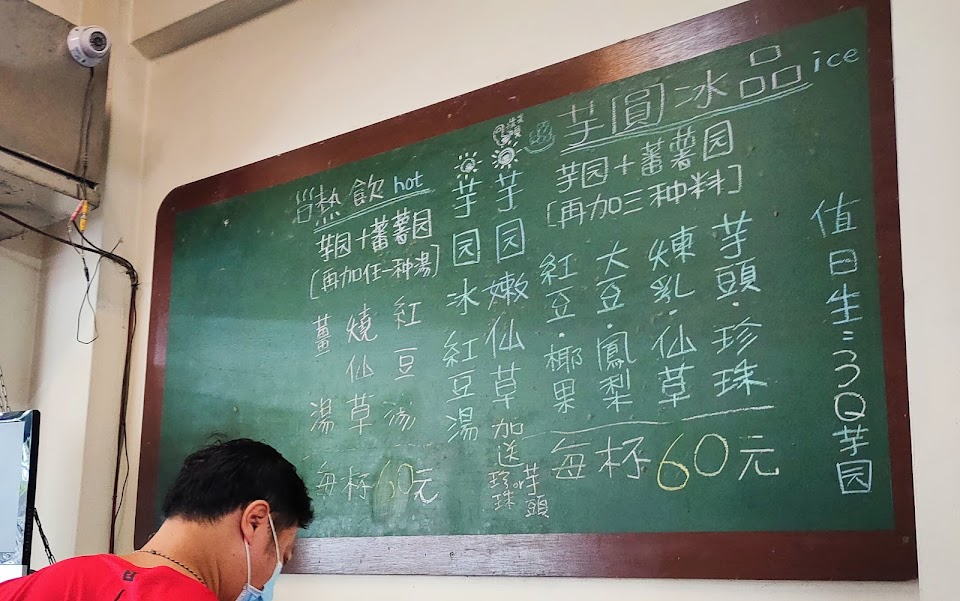 值日生:ㄋQ芋园
芋圓冰品 ice
芋园+蕃薯园
[再加三种料]
芋頭·珍珠
煉乳·仙草
大豆·鳳梨
紅豆·椰果
每杯60元
芋园嫩仙草加送珍珠or芋頭
芋园冰紅豆湯
熱飲 hot
芋园+蕃薯园
[再加任一种湯]
紅豆湯
燒仙草
薑湯
每杯60元